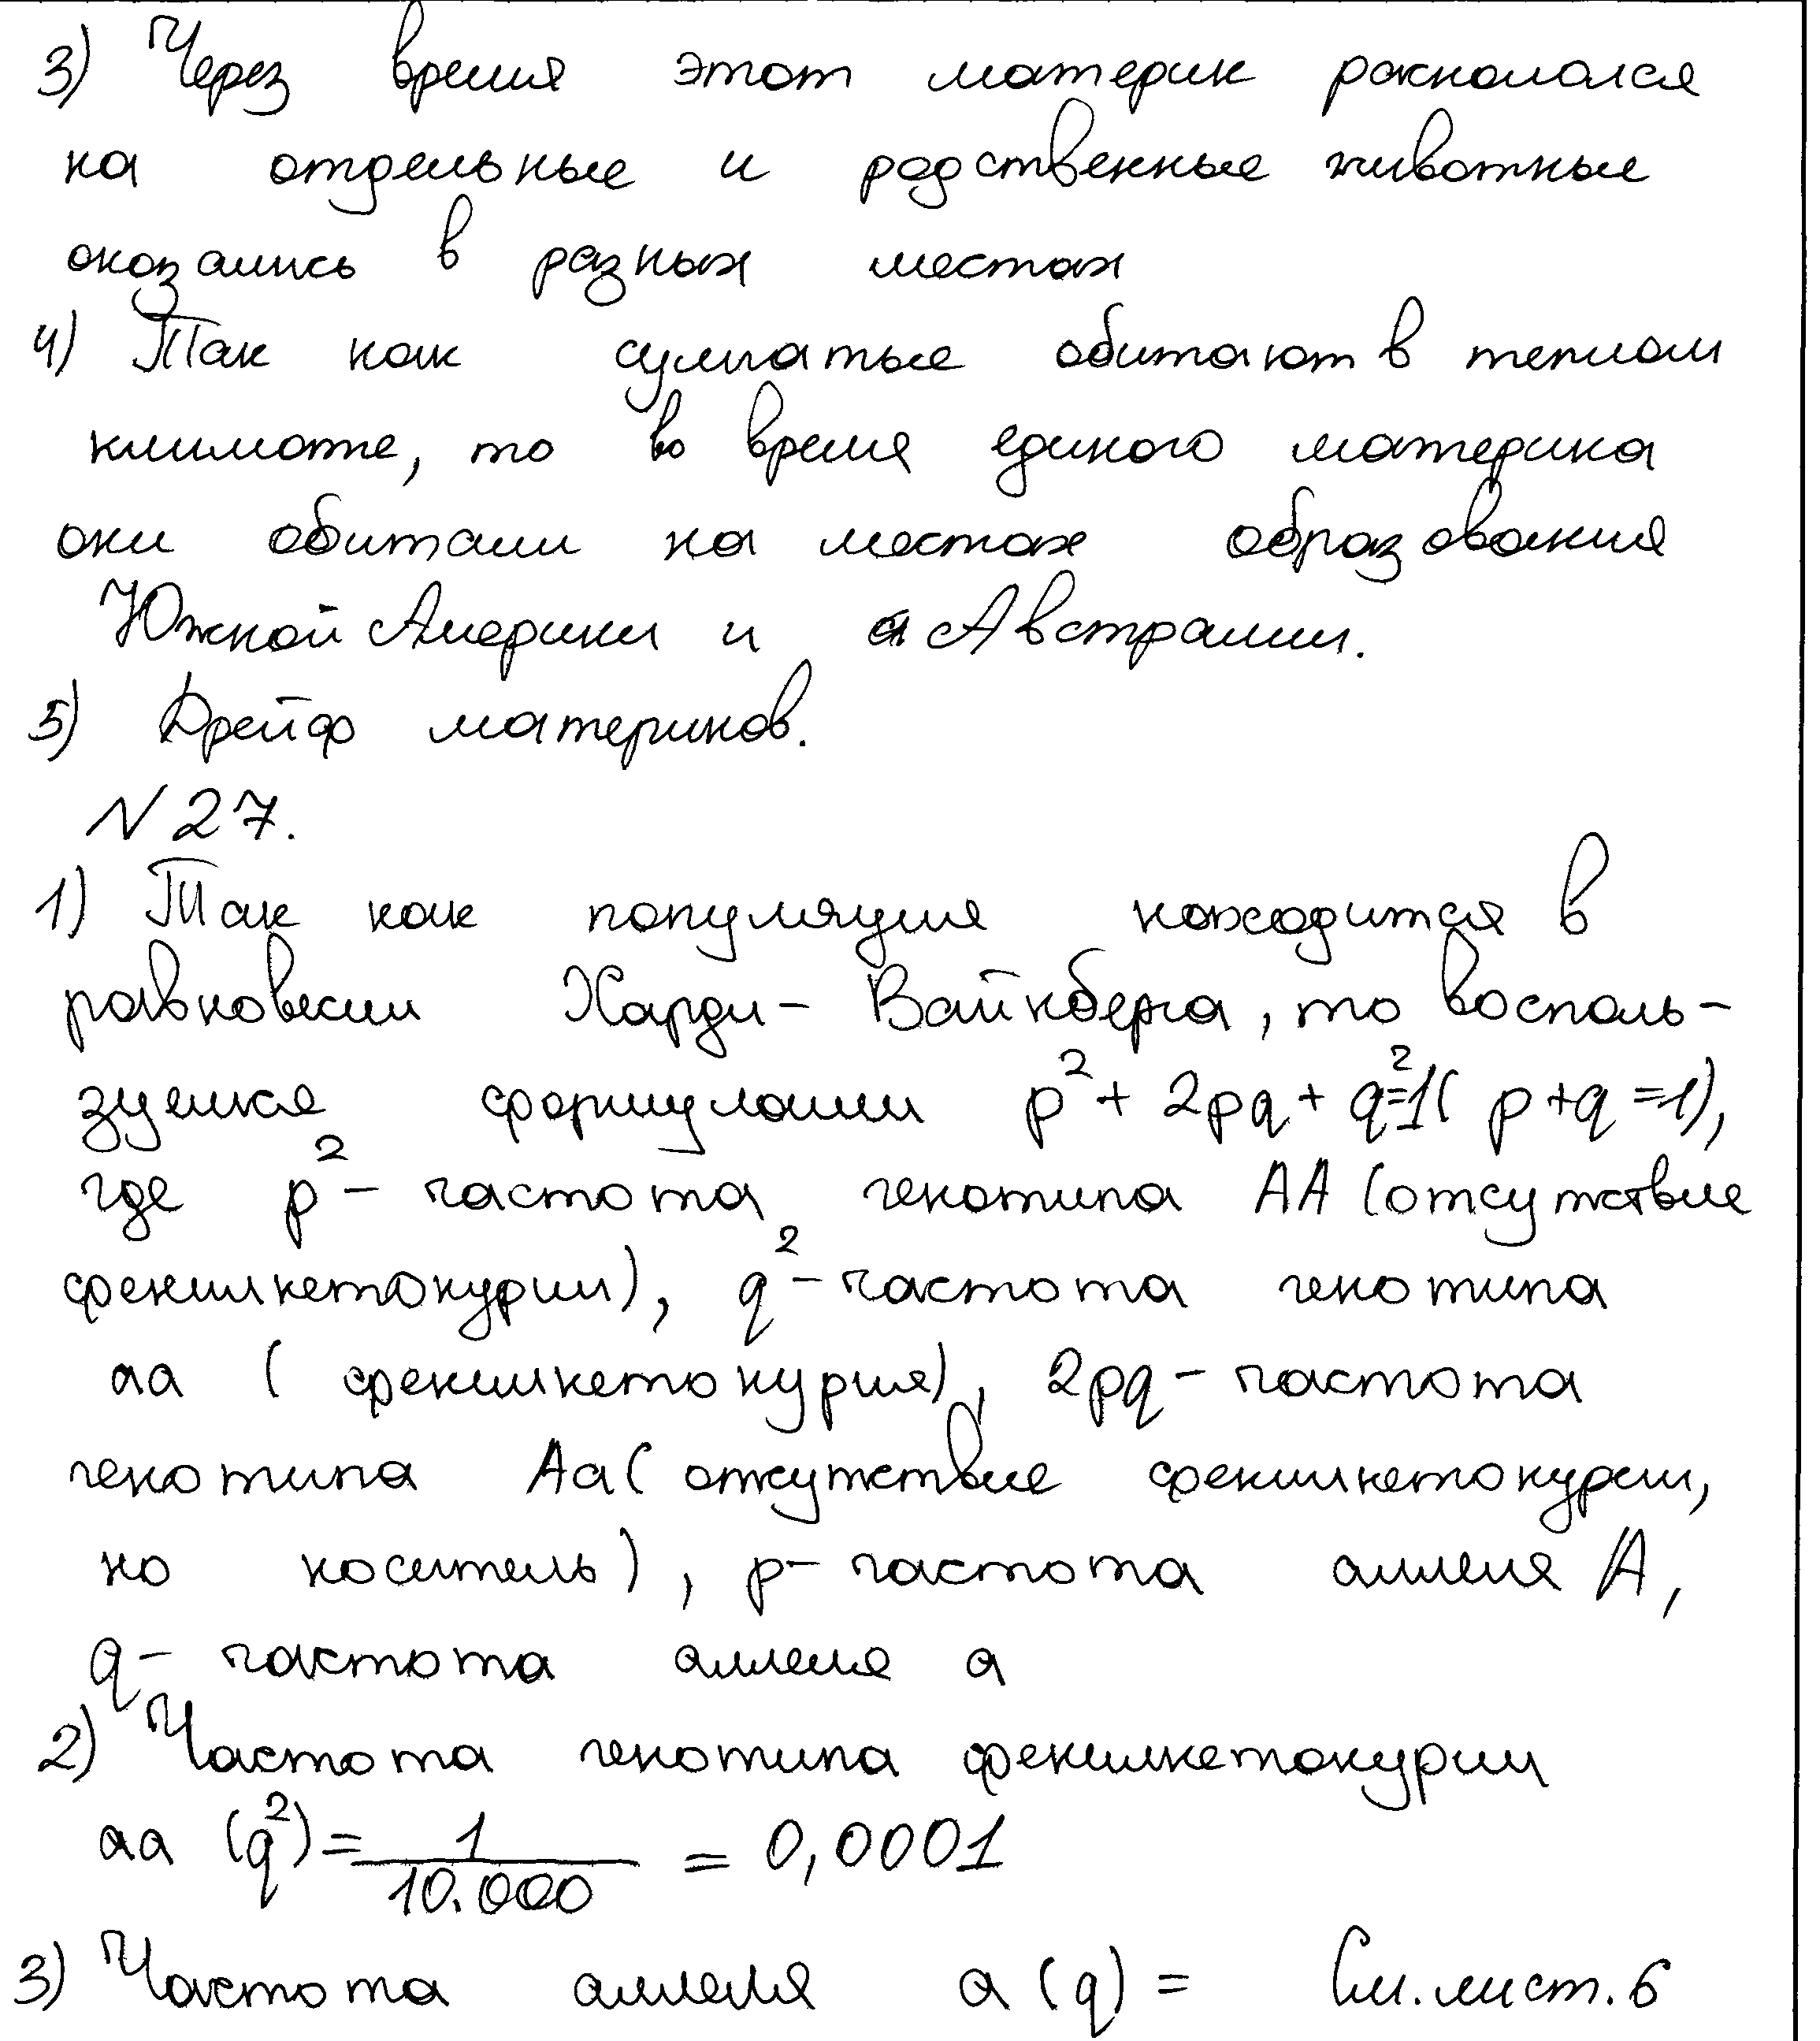 3) Через время этот материк раскололся
на отдельные и родственные животные
оказались в разных местах
4) Так как сумчатые обитают в теплом
климате, то во время единого материка
они обитали на местах образования
Южной Америки и Австралии.
5) Дрейф материков.
№27.
1) Так как популяция находится в
равновесии Харди- Вайнберга, то восполь-
зуемся формулами p² + 2pq + q²=1( p+q=1),
где p² - частота генотипа AA (отсутствие
фенилкетонурии), q² - частота генотипа
aa (фенилкетонурия), 2pq - частота
генотипа Aa (отсутствие фенилкетонурии,
но носитель), p- частота аллеля A,
q- частота аллеля a
2) Частота генотипа фенилкетонурии
aa (q²)= 1/10.000 = 0,0001
3) Частота аллеля a (q) = См. лист. 6